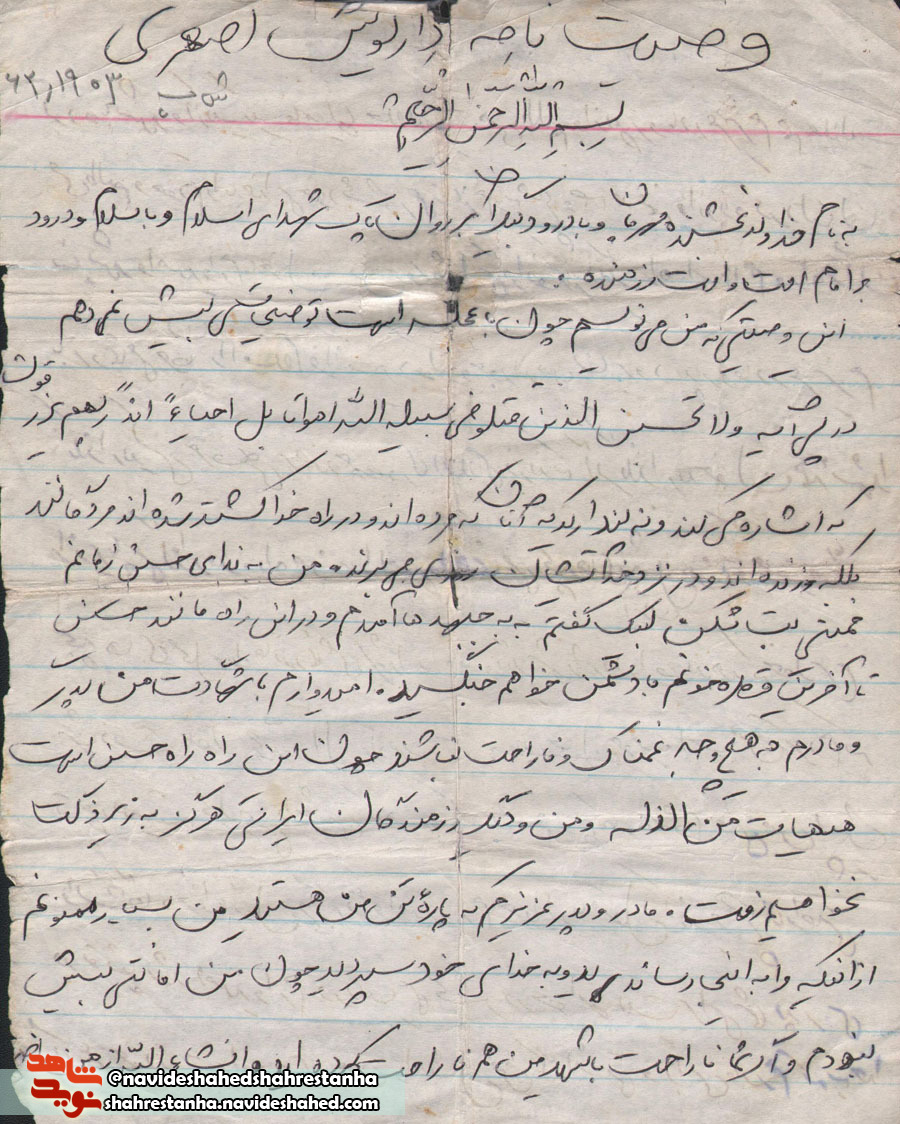 وصیت نامه داریوش اصغری
۶۲٫۱۹۰۳
بسم الله الرحمن الرحیم
به نام خداوند بخشنده مهربان و با درود بیکران بر روان پاک شهدای اسلام و با سلام و درود
بر امام امت و امت رزمنده .
این وصیتی که من می نویسم چون با عجله است توضیحی بیش نمی دهم
در پی آیه ولا تحسبن الذین قتلو فی سبیل الله امواتا بل احیاءً اند ربهم یرزقون
که اشاره می کند و نه پندارید که آنان که مرده اند و در راه خدا کشته شده اند مردگانند
بلکه زنده اند و در نزد خدایشان روزی می برند. من به ندای حسین زمانم
خمینی بت شکن لبیک گفتم به جبهه ها آمدم و در این راه مانند حسین
تا آخرین قطره خونم با دشمن خواهم جنگید. امیدوارم با شهادت من پدر
و مادرم به هیچ وجه غمناک و ناراحت نباشند چون این راه راه حسین است
هیهات من الذله و من و دیگر رزمندگان ایرانی هرگز به زیر ذلت
نخواهیم رفت. مادر و پدر عزیزم که پارهٔ تن من هستید من بسیار ممنونم
از اینکه مرا به اینجا رساندید و به خدای خود سپردید چون من امانتی بیش
نبودم و اگر شما ناراحت باشید من هم ناراحت و انشاء الله از من
شاهد نوید
@navideshahedshahrestanha
shahrestanha.navideshahed.com